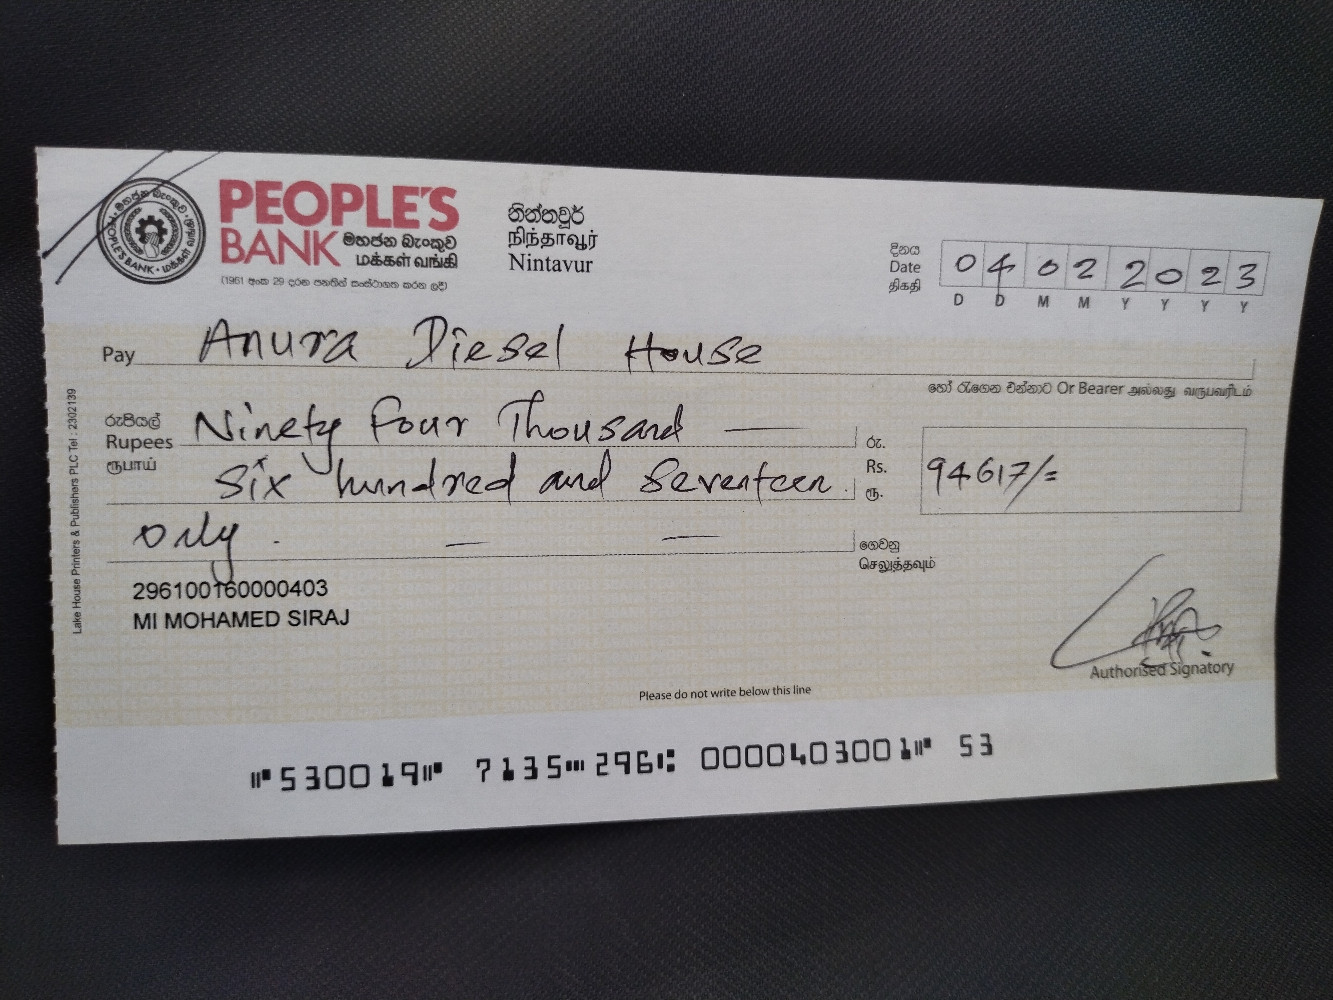 PEOPLE'S
BANK මහජන බැංකුව
மக்கள் வங்கி
(1961 අංක 29 දරන පනතින් සංස්ථාගත කරන ලදී)
මහජන බැංකුව
PEOPLE'S BANK • மக்கள் வங்கி
නින්තවූර්
நிந்தாவூர்
Nintavur
දිනය
Date 04 02 2023
திகதி
D D M M Y Y Y Y
Pay Anura Diesel House
හෝ රැගෙන එන්නාට Or Bearer அல்லது வருபவரிடம்
රුපියල්
Rupees Ninety Four Thousand
ரூபாய்
Six hundred and Seventeen
only.
රු.
Rs. 94617/=
ரூ.
ගෙවනු
செலுத்தவும்
296100160000403
MI MOHAMED SIRAJ
Authorised Signatory
Please do not write below this line
⑈530019⑈ 7135⑉296⑆ 0000403001⑈ 53
Lake House Printers & Publishers PLC Tel : 2302139